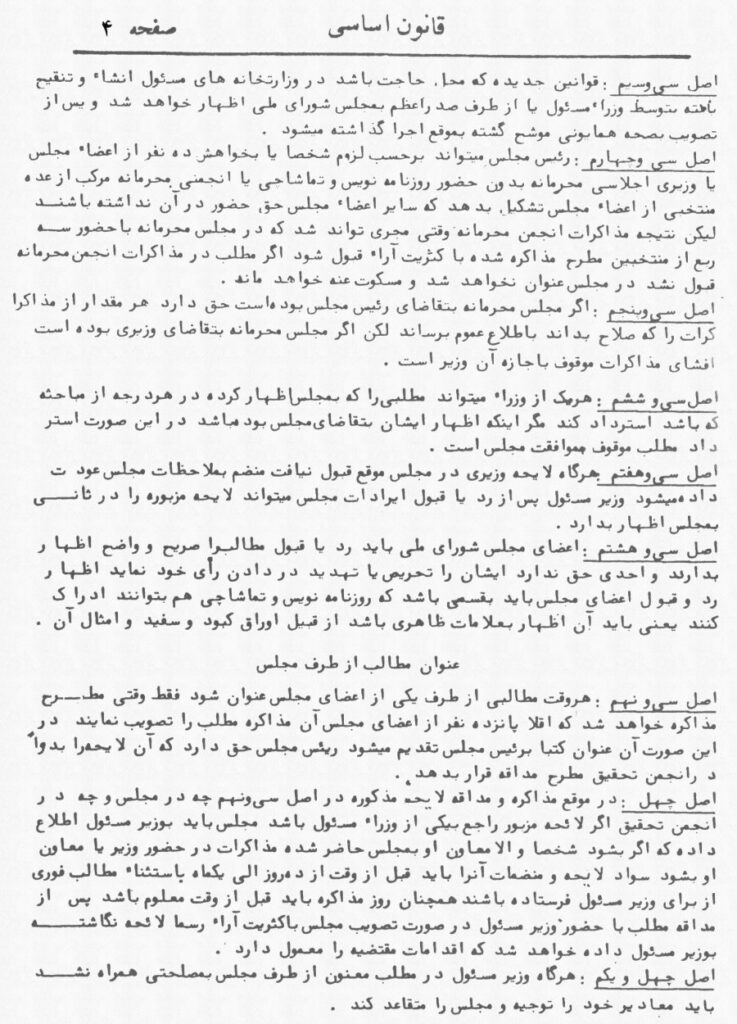 قانون اساسی
صفحه ۴
اصل سی‌وسیم : قوانین جدیده که محل حاجت باشد در وزارتخانه های مسئول انشاء و تنقیح
یافته بتوسط وزراء مسئول یا از طرف صدراعظم بمجلس شورای ملی اظهار خواهد شد و پس از
تصویب بصحه همایونی موشح گشته بموقع اجرا گذاشته میشود .
اصل سی وچهارم : رئیس مجلس میتواند برحسب لزوم شخصا یا بخواهش ده نفر از اعضاء مجلس
یا وزیری اجلاسی محرمانه بدون حضور روزنامه نویس و تماشاچی یا انجمنی محرمانه مرکب از عده
منتخبی از اعضاء مجلس تشکیل بدهد که سایر اعضاء مجلس حق حضور در آن نداشته باشند
لیکن نتیجه مذاکرات انجمن محرمانه وقتی مجری تواند شد که در مجلس محرمانه با حضور سه
ربع از منتخبین مطرح مذاکره شده با کثریت آراء قبول شود اگر مطلب در مذاکرات انجمن محرمانه
قبول نشد در مجلس عنوان نخواهد شد و مسکوت عنه خواهد ماند .
اصل سی‌وپنجم : اگر مجلس محرمانه بتقاضای رئیس مجلس بوده‌است حق دارد هر مقدار از مذاکرا
کرات را که صلاح بداند باطلاع عموم برساند لکن اگر مجلس محرمانه بتقاضای وزیری بوده است
افشای مذاکرات موقوف باجازه آن وزیر است .
اصل سی‌و ششم : هریک از وزراء میتواند مطلبی‌را که بمجلس اظهار کرده در هر درجه از مباحثه
که باشد استرداد کند مگر اینکه اظهار ایشان بتقاضای‌مجلس بوده‌باشد در این صورت استر
داد مطلب موقوف بموافقت مجلس است .
اصل سی‌وهفتم : هرگاه لایحه وزیری در مجلس موقع قبول نیافت منضم بملاحظات مجلس عودت
داده‌میشود وزیر مسئول پس از رد یا قبول ایرادات مجلس میتواند لایحه مزبوره را در ثانی
بمجلس اظهار بدارد .
اصل سی‌و هشتم : اعضای مجلس شورای ملی باید رد یا قبول مطالب‌را صریح و واضح اظهار
بدارند و احدی حق ندارد ایشان را تحریص یا تهدید در دادن رأی خود نماید اظهار
رد و قبول اعضای مجلس باید بقسمی باشد که روزنامه نویس و تماشاچی هم بتوانند ادراک
کنند یعنی باید آن اظهار بعلامات ظاهری باشد از قبیل اوراق کبود و سفید و امثال آن .
عنوان مطالب از طرف مجلس
اصل سی‌و نهم : هروقت مطالبی از طرف یکی از اعضای مجلس عنوان شود فقط وقتی مطرح
مذاکره خواهد شد که اقلا پانزده نفر از اعضای مجلس آن مذاکره مطلب را تصویب نمایند در
این صورت آن عنوان کتبا برئیس مجلس تقدیم میشود ریئس مجلس حق دارد که آن لایحه‌را بدواً
در انجمن تحقیق مطرح مداقه قرار بدهد .
اصل چهل : در موقع مذاکره و مداقه لایحه مذکوره در اصل سی‌ونهم چه در مجلس و چه در
انجمن تحقیق اگر لائحه مزبور راجع بیکی از وزراء مسئول باشد مجلس باید بوزیر مسئول اطلاع
داده که اگر بشود شخصا و الا معاون او بمجلس حاضر شده مذاکرات در حضور وزیر یا معاون
او بشود سواد لایحه و منضمات آنرا باید قبل از وقت از ده‌روز الی یکماه باستثناء مطالب فوری
از برای وزیر مسئول فرستاده باشند همچنان روز مذاکره باید قبل از وقت معلوم باشد پس از
مداقه مطلب با حضور وزیر مسئول در صورت تصویب مجلس باکثریت آراء رسما لائحه نگاشته
بوزیر مسئول داده خواهد شد که اقدامات مقتضیه را معمول دارد .
اصل چهل و یکم : هرگاه وزیر مسئول در مطلب معنون از طرف مجلس بمصلحتی همراه نشد
باید معاذیر خود را توجیه و مجلس را متقاعد کند .